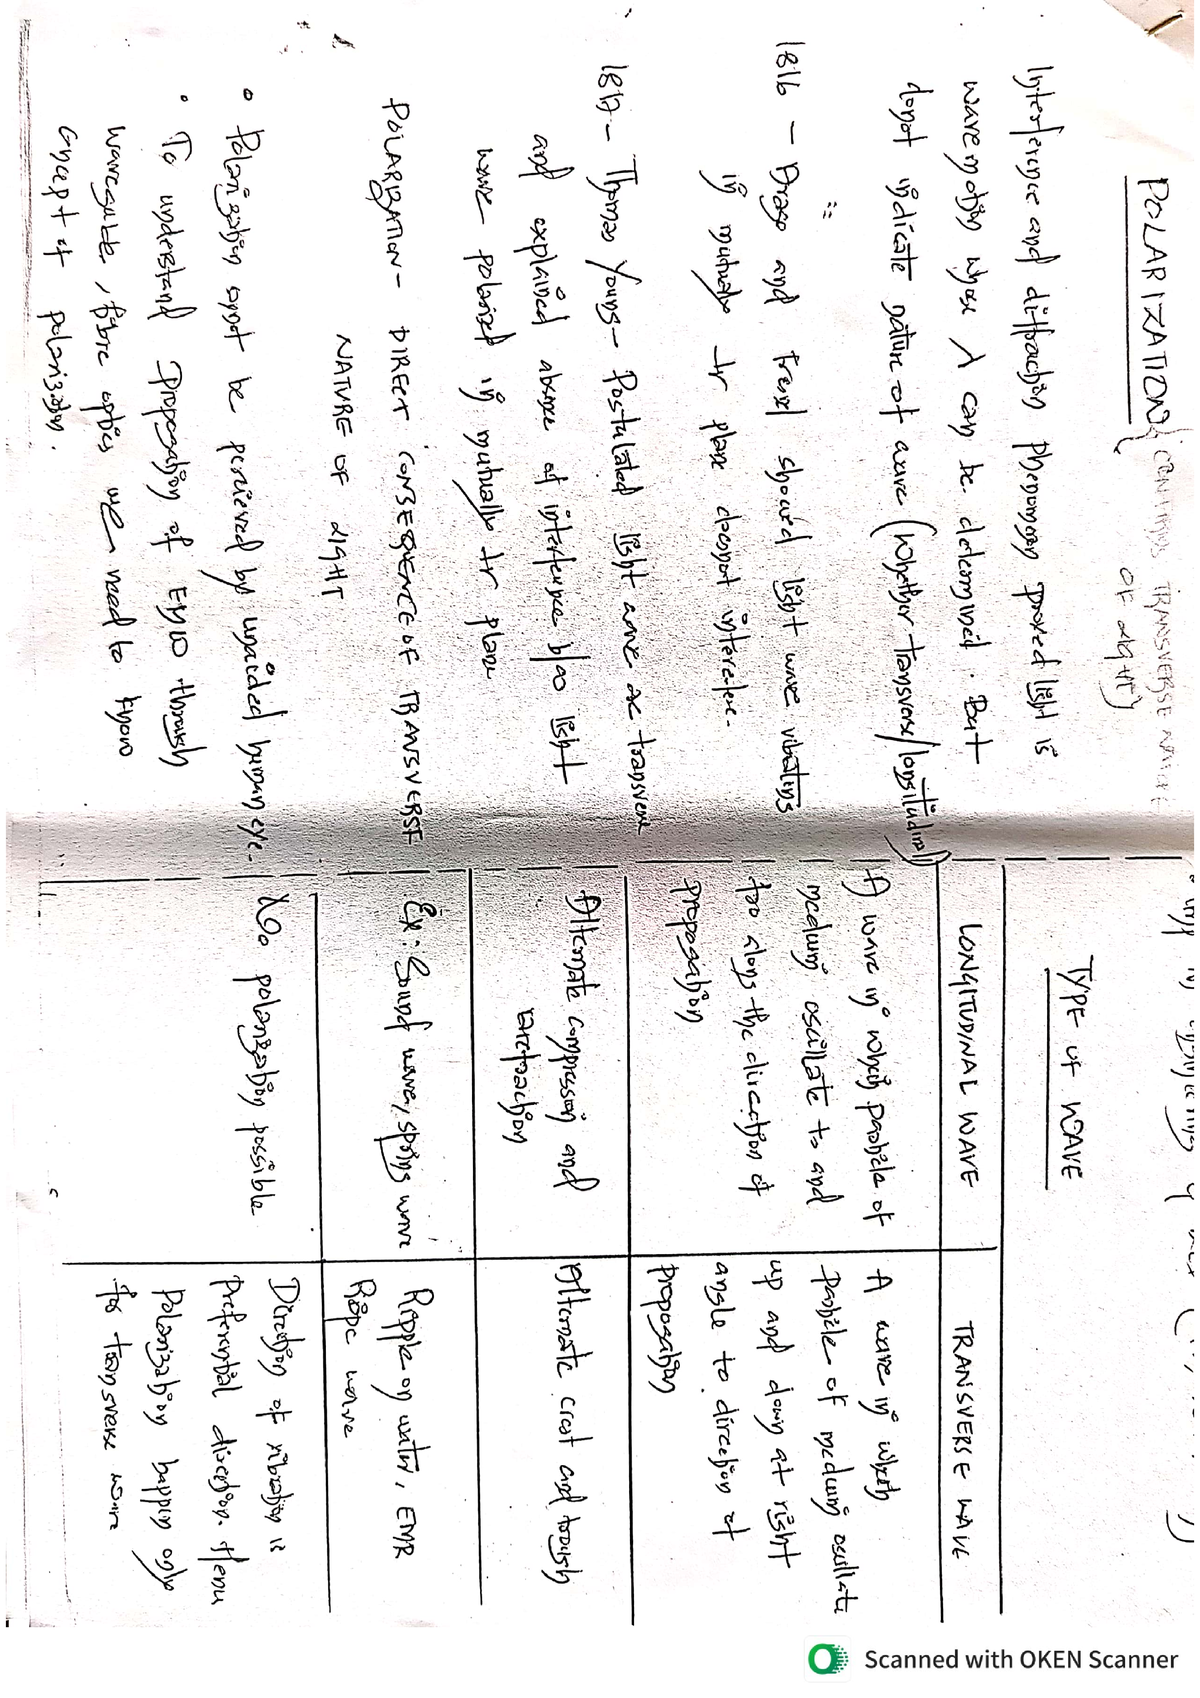 POLARIZATION { CONFIRMS TRANSVERSE NATURE
OF LIGHT }
Interference and diffraction phenomenon proved light is
wave motion whose λ can be determined. But
donot indicate nature of wave (whether transverse/longitudinal)
1816 - Arago and fresnel showed light wave vibrating
in mutually ⊥r plane doesnot interefere.
1817 - Thomas Young - Postulated light wave as transverse
and explained absence of interference b/w light
wave polarized in mutually ⊥r plane
POLARIZATION - DIRECT CONSEQUENCE OF TRANSVERSE
NATURE OF LIGHT
• Polarization cannot be percieved by unaided human eye.
• To understand propagation of EMW through
waveguide, fibre optics we need to know
concept of polarization.
TYPE OF WAVE
LONGITUDINAL WAVE
TRANSVERSE WAVE
A wave in which particle of
medium oscillate to and
fro along the direction of
propagation
A wave in which
particle of medium oscillate
up and down at right
angle to direction of
propogation
Alternate compression and
rarefraction
Alternate crest and trough
Ex: Sound wave, spring wave
Ripple on water, EMR
Rope wave
No polarization possible
Direction of vibration is
preferential direction. Hence
Polarization happen only
for transverse wave
Scanned with OKEN Scanner